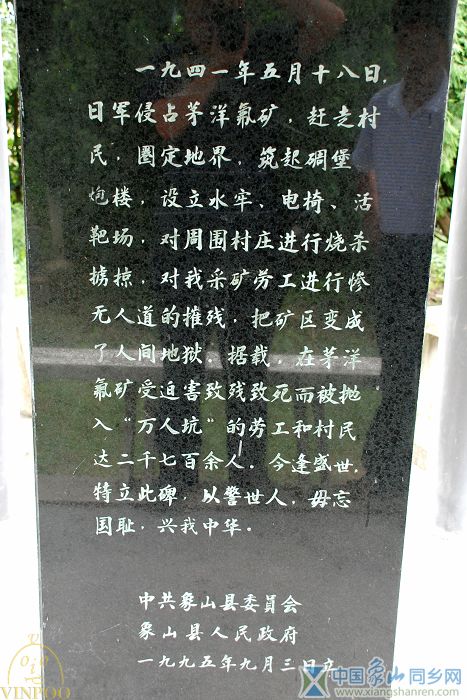 一九四一年五月十八日，
日军侵占茅洋氟矿，赶走村
民，圈定地界，筑起碉堡
炮楼，设立水牢、电椅、活
靶场，对周围村庄进行烧杀
掳掠，对我采矿劳工进行惨
无人道的摧残，把矿区变成
了人间地狱。据载，在茅洋
氟矿受迫害致残致死而被抛
入“万人坑”的劳工和村民
达二千七百余人，今逢盛世，
特立此碑，以警世人，毋忘
国耻，兴我中华。
中共象山县委員会
象山县人民政府
一九九五年九月三日立
VINPOO
中国象山同乡网
www.xiangshanren.com